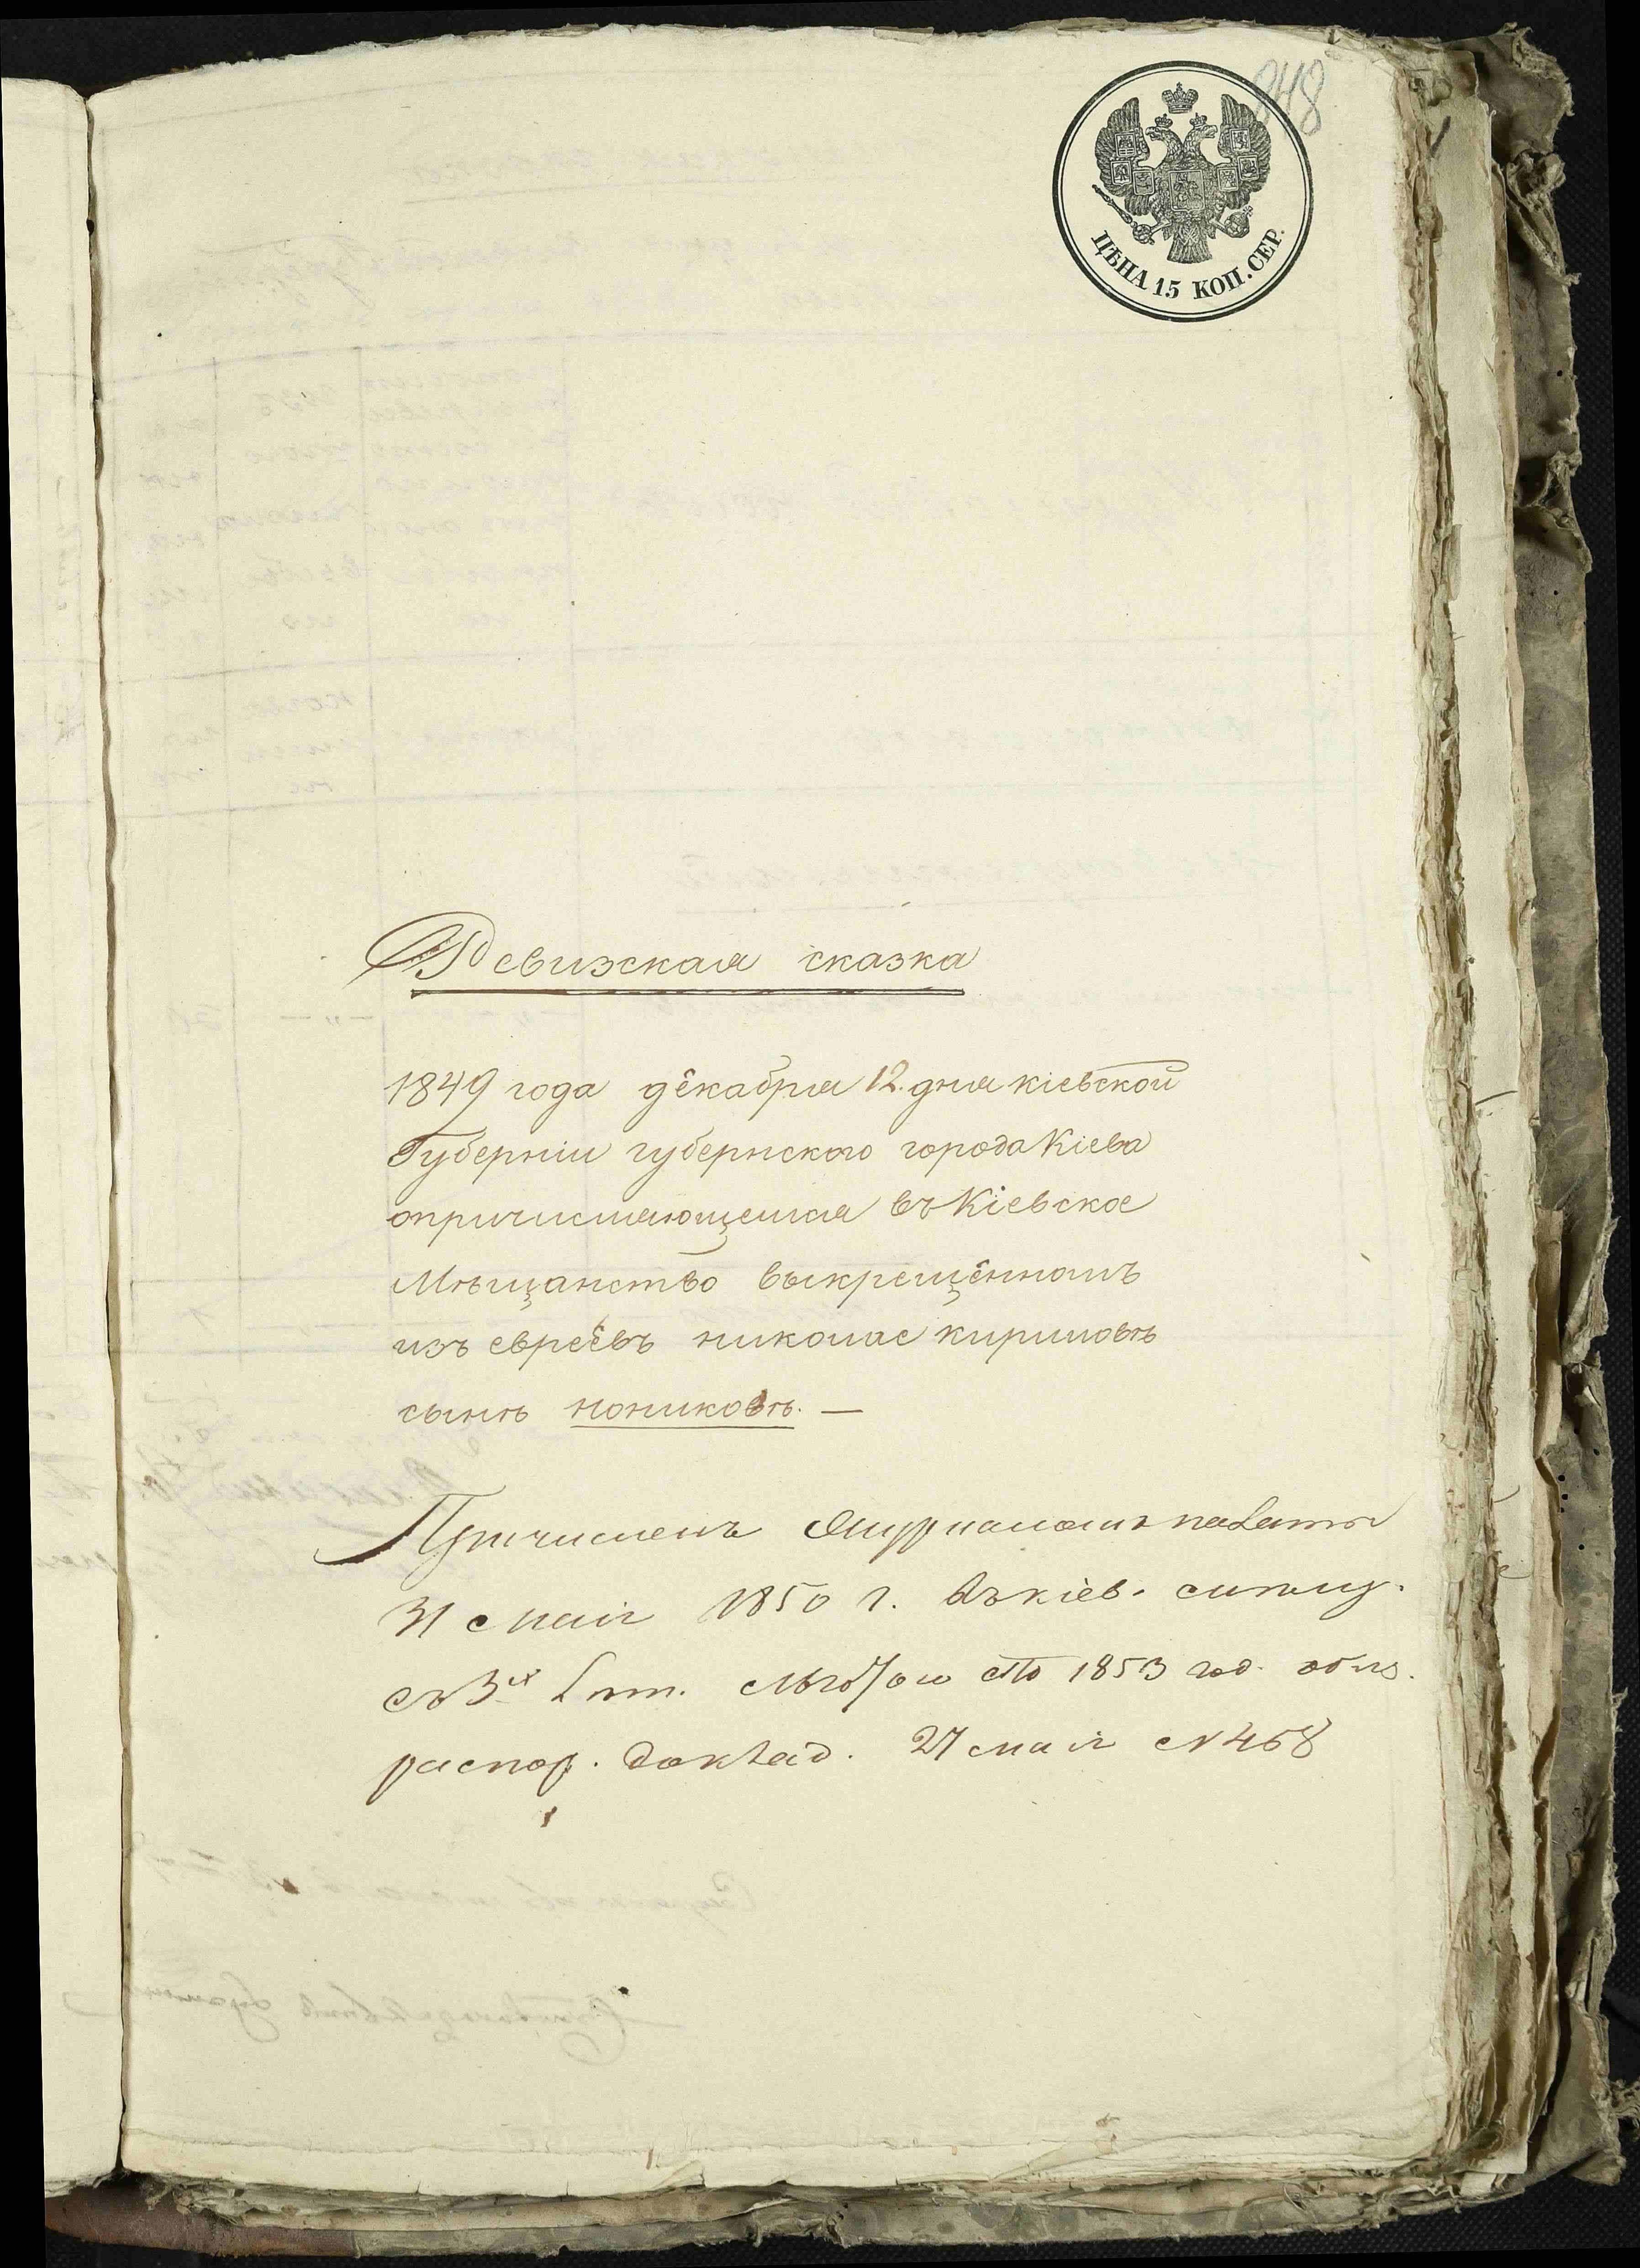 848
ЦѢНА 15 КОП. СЕР.
Ревизская сказка
1849 года декабря 12. дня кіевской
Губерніи губернского города Кіева
опричисляющемся въ Кіевское
Мѣщанство выкрещенномъ
изъ евреевъ николае кириловѣ
сынѣ нониковѣ. —
Причисленъ Журналомъ палаты
31 мая 1850 г. въ кіев.
съ 3х лѣт. льготою по 1853 год.
распор. доклад. 27 мая N 468